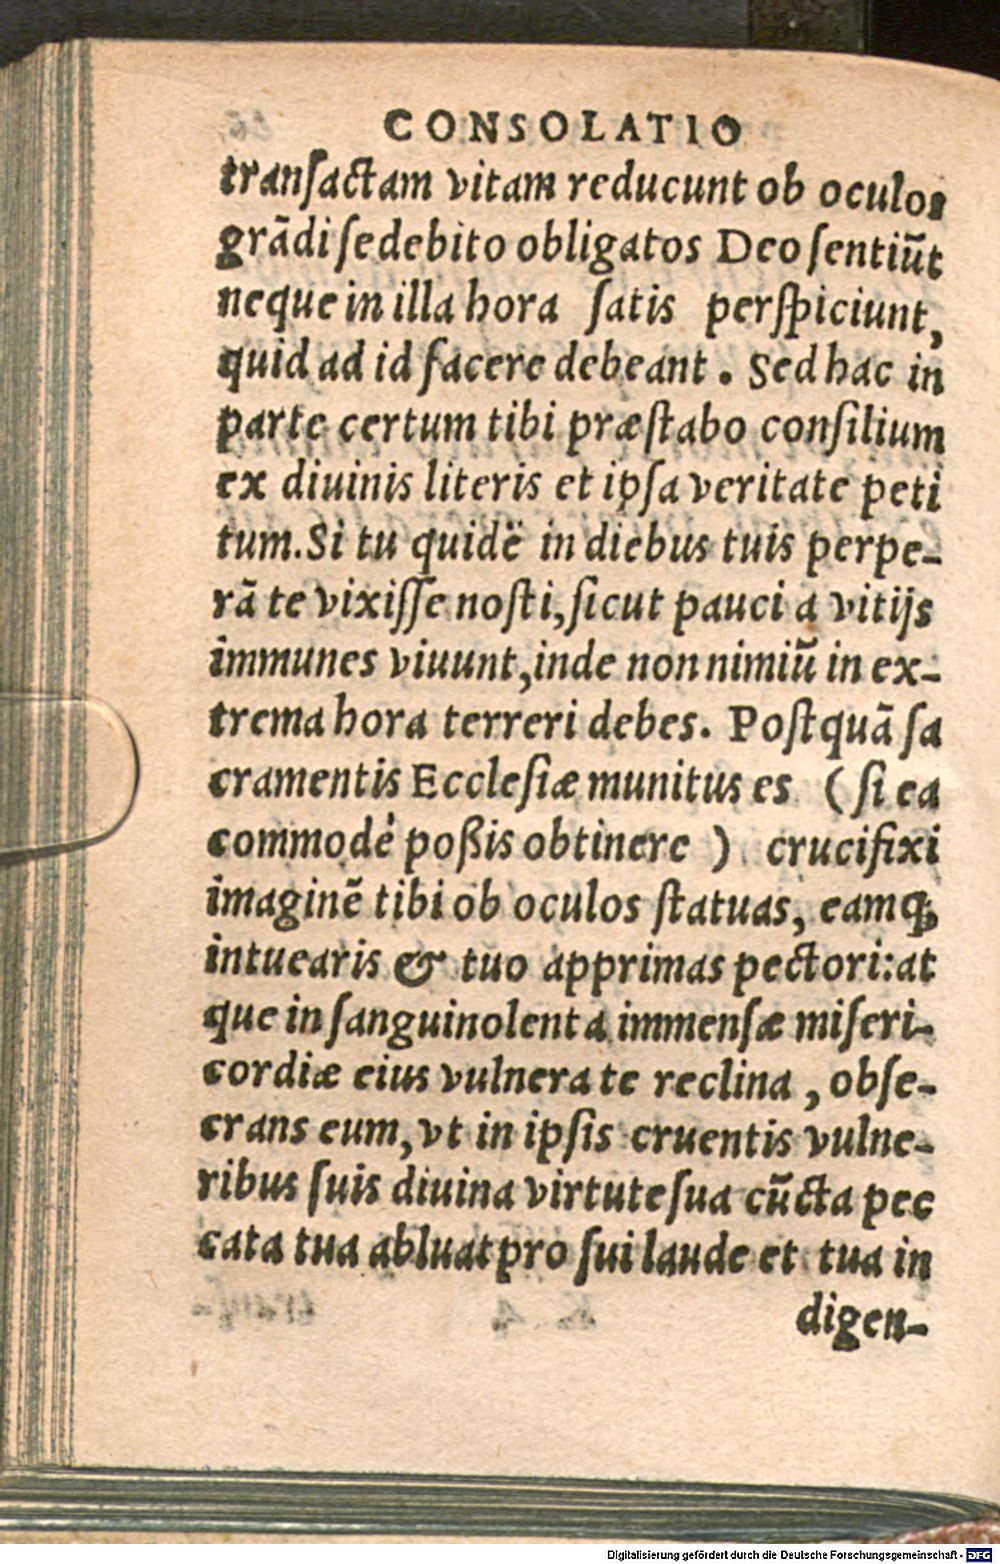 CONSOLATIO
tranſactam vitam reducunt ob oculos
grādi ſe debito obligatos Deo ſentiūt
neque in illa hora ſatis perſpiciunt,
quid ad id facere debeant. Sed hac in
parte certum tibi præſtabo conſilium
ex diuinis literis et ipſa veritate peti
tum. Si tu quidē in diebus tuis perpe-
rā te vixiſſe noſti, ſicut pauci a vitijs
immunes viuunt, inde non nimiū in ex-
trema hora terreri debes. Poſtquā ſa
cramentis Eccleſiæ munitus es (ſi ea
commodè poßis obtinere) crucifixi
imaginē tibi ob oculos ſtatuas, eamq́;
intuearis & tuo apprimas pectori: at
que in ſanguinolenta immenſæ miſeri-
cordiæ eius vulnera te reclina, obſe-
crans eum, vt in ipſis cruentis vulne-
ribus ſuis diuina virtute ſua cūcta pec
cata tua abluat pro ſui laude et tua in
digen-
Digitalisierung gefördert durch die Deutsche Forschungsgemeinschaft - DFG